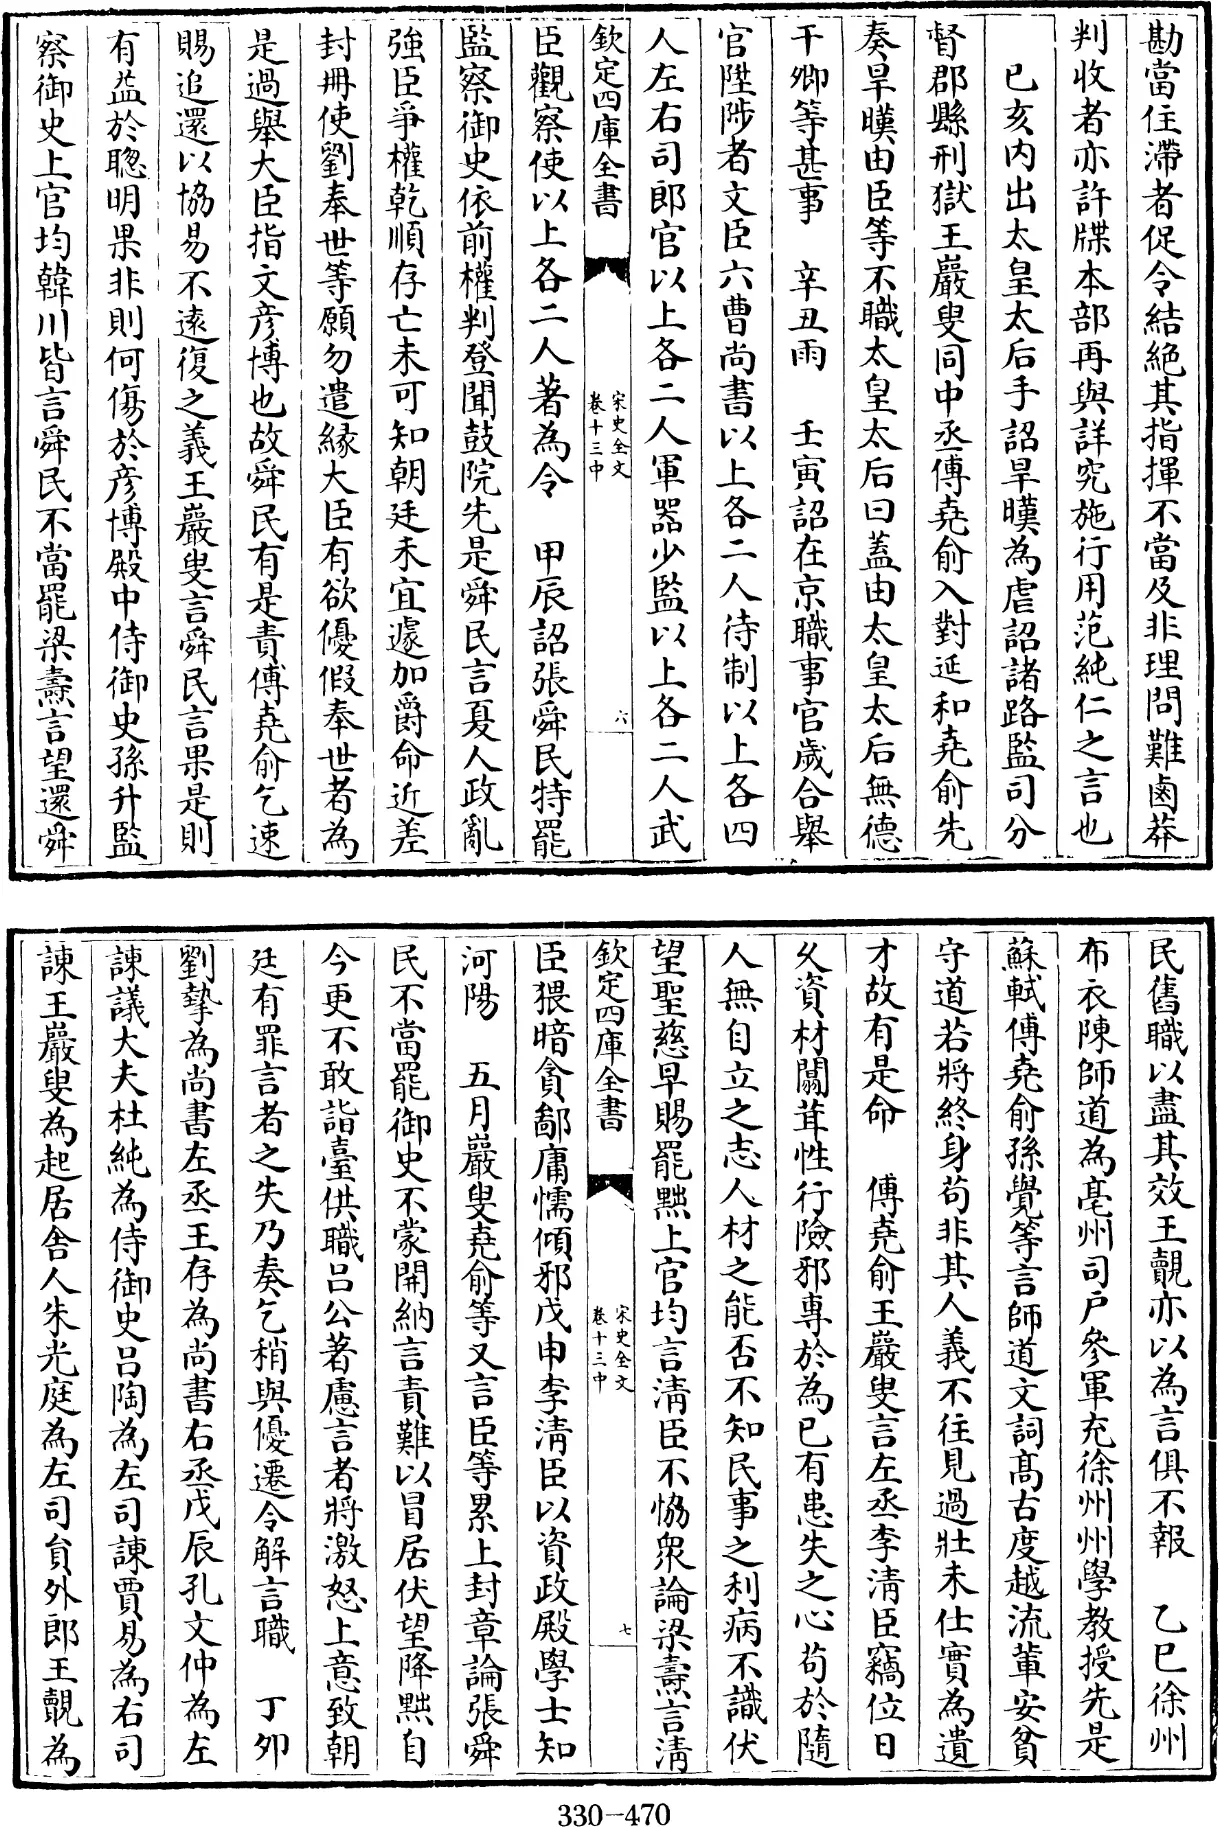 勘當住滯者促令結絕其指揮不當及非理問難鹵莽
判收者亦許牒本部再與詳究施行用范純仁之言也
已亥内出太皇太后手詔旱暵為虐詔諸路監司分
督郡縣刑獄王巖叟同中丞傅堯俞入對延和堯俞先
奏旱暵由臣等不職太皇太后曰蓋由太皇太后無德
干卿等甚事　辛丑雨　壬寅詔在京職事官歲合舉
官陞陟者文臣六曹尚書以上各二人待制以上各四
人左右司郎官以上各二人軍器少監以上各二人武
欽定四庫全書
宋史全文
卷十三中
六
臣觀察使以上各二人著為令　甲辰詔張舜民特罷
監察御史依前權判登聞鼓院先是舜民言夏人政亂
強臣爭權乾順存亡未可知朝廷未宜遽加爵命近差
封冊使劉奉世等願勿遣緣大臣有欲優假奉世者為
是過舉大臣指文彦博也故舜民有是責傅堯俞乞速
賜追還以協易不逺復之義王巖叟言舜民言果是則
有益於聰明果非則何傷於彦博殿中侍御史孫升監
察御史上官均韓川皆言舜民不當罷梁燾言望還舜
民舊職以盡其效王覿亦以為言俱不報　乙巳徐州
布衣陳師道為亳州司戶參軍充徐州州學教授先是
蘇軾傅堯俞孫覺等言師道文詞髙古度越流輩安貧
守道若將終身苟非其人義不往見過壯未仕實為遺
才故有是命　傅堯俞王巖叟言左丞李清臣竊位日
乆資材闒茸性行險邪專於為已有患失之心苟於隨
人無自立之志人材之能否不知民事之利病不識伏
望聖慈早賜罷黜上官均言清臣不恊衆論梁燾言清
欽定四庫全書
宋史全文
卷十三中
七
臣猥暗貪鄙庸懦傾邪戊申李清臣以資政殿學士知
河陽　五月巖叟堯俞等又言臣等累上封章論張舜
民不當罷御史不蒙開納言責難以冒居伏望降黜自
今更不敢詣臺供職吕公著慮言者將激怒上意致朝
廷有罪言者之失乃奏乞稍與優遷令解言職　丁夘
劉摯為尚書左丞王存為尚書右丞戊辰孔文仲為左
諫議大夫杜純為侍御史吕陶為左司諫賈易為右司
諫王巖叟為起居舍人朱光庭為左司負外郎王覿為
330-470